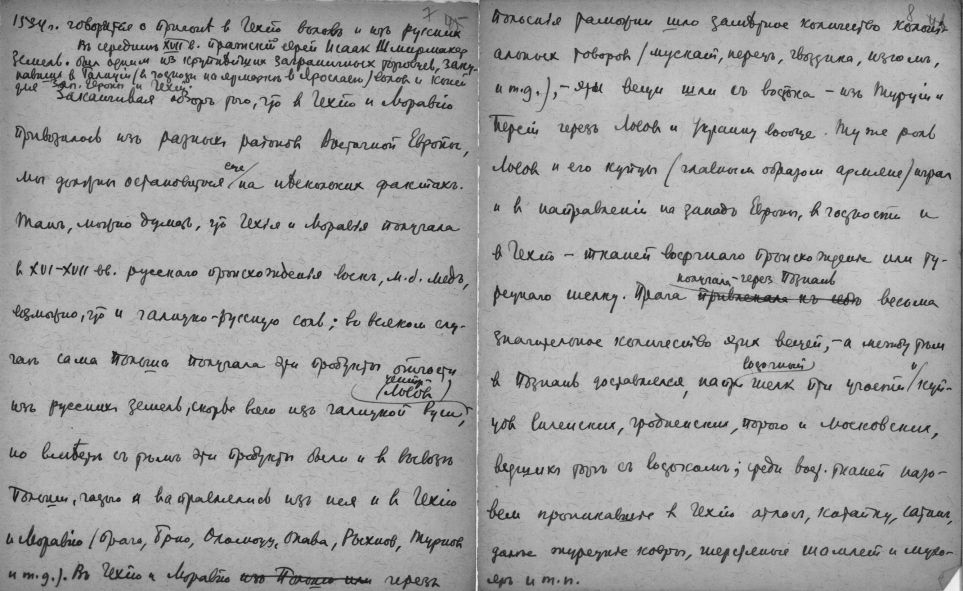 7
1594 г. говорится о пригоне в Чехию волов и из русских
В середине XVII в. пражский еврей Исаак
земель. был одним из крупнейших заграничных торговцев, заку-
павших в Галиции (в частности на ярмарках в Ярославе) волов и коней
для зап. Европы и Чехии.
Заканчивая обзор того, что в Чехию и Моравию
привозилось из разных районов Восточной Европы,
мы должны остановиться еще на нескольких фактах.
Так, можно думать, что Чехия и Моравия получала
в XVI-XVII вв. русского происхожденья воск, м.б. медъ,
возможно, что и галицко-русскую соль; во всяком слу-
чаѣ сама Польша получала эти продукты отчасти
центр - Львов
из русских земель, скорее всего из галицкой Руси,
но вместе с тем эти продукты были и в вывозѣ
Польши, часто и направлялись из нея и в Чехию
и Моравию (Прага, Брно, Оломоуц, Опава, Турнов
и т.д.). Въ Чехию и Моравию из Польши или через
8
Польския рамоты шло заметное количество колони-
альных товаров (мускат, перец, гвоздика, изюм,
и т.д.), - эти вещи шли съ востока - из Турции и
Персии через Львов и Украину вообще. Ту же роль
Львов и его купцы (главным образом армяне) играл
и в направлении на запад Европы, в частности и
в Чехию - тканей восточного происхождения или ту-
рецкаго шелку. Прага привлекала къ себѣ получала - через Познань весьма
значительное количество этих вещей, - а между тем
в Познань доставлялся, напр. восточный шелк при участии и куп-
цов виленских, гродненских, порою и московских,
ведших торг с востоком; среди вост. тканей назо-
вем проникавшие в Чехию атлас, китайку, сатин,
далее турецкие ковры, шерстяные шамлет и мухо-
яръ и т.п.